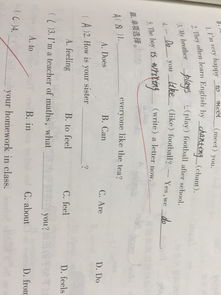 1. I'm very happy to meet (meet) you.
2. They often learn English by chanting (chant).
3. My brother plays (play) football after school.
4. Do you like (like) football? — Yes, we do
5. The boy is writing (write) a letter now.
三、单项选择。
( )1. everyone like the tea?
A. Does B. Can C. Are D. Do
( A )2. How is your sister ?
A. feeling B. to feel C. feel D. feels
( )3. I'm a teacher of maths, what you?
A. to B. in C. about D. from
( )4. your homework in class.